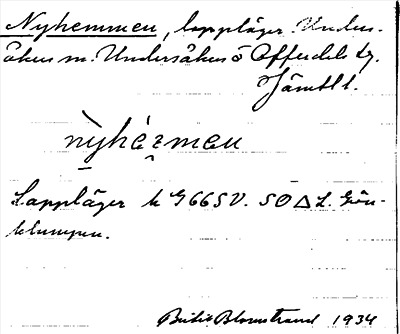 Nyhemmen, lappläger. Unders-
åkers sn. Undersåkers o Offerdals tg.
Jämtl l.
nyhèrmen
Lappläger k G66SV. SO Δ L. Grön-
klumpen.
Britta Blomstrand 1934